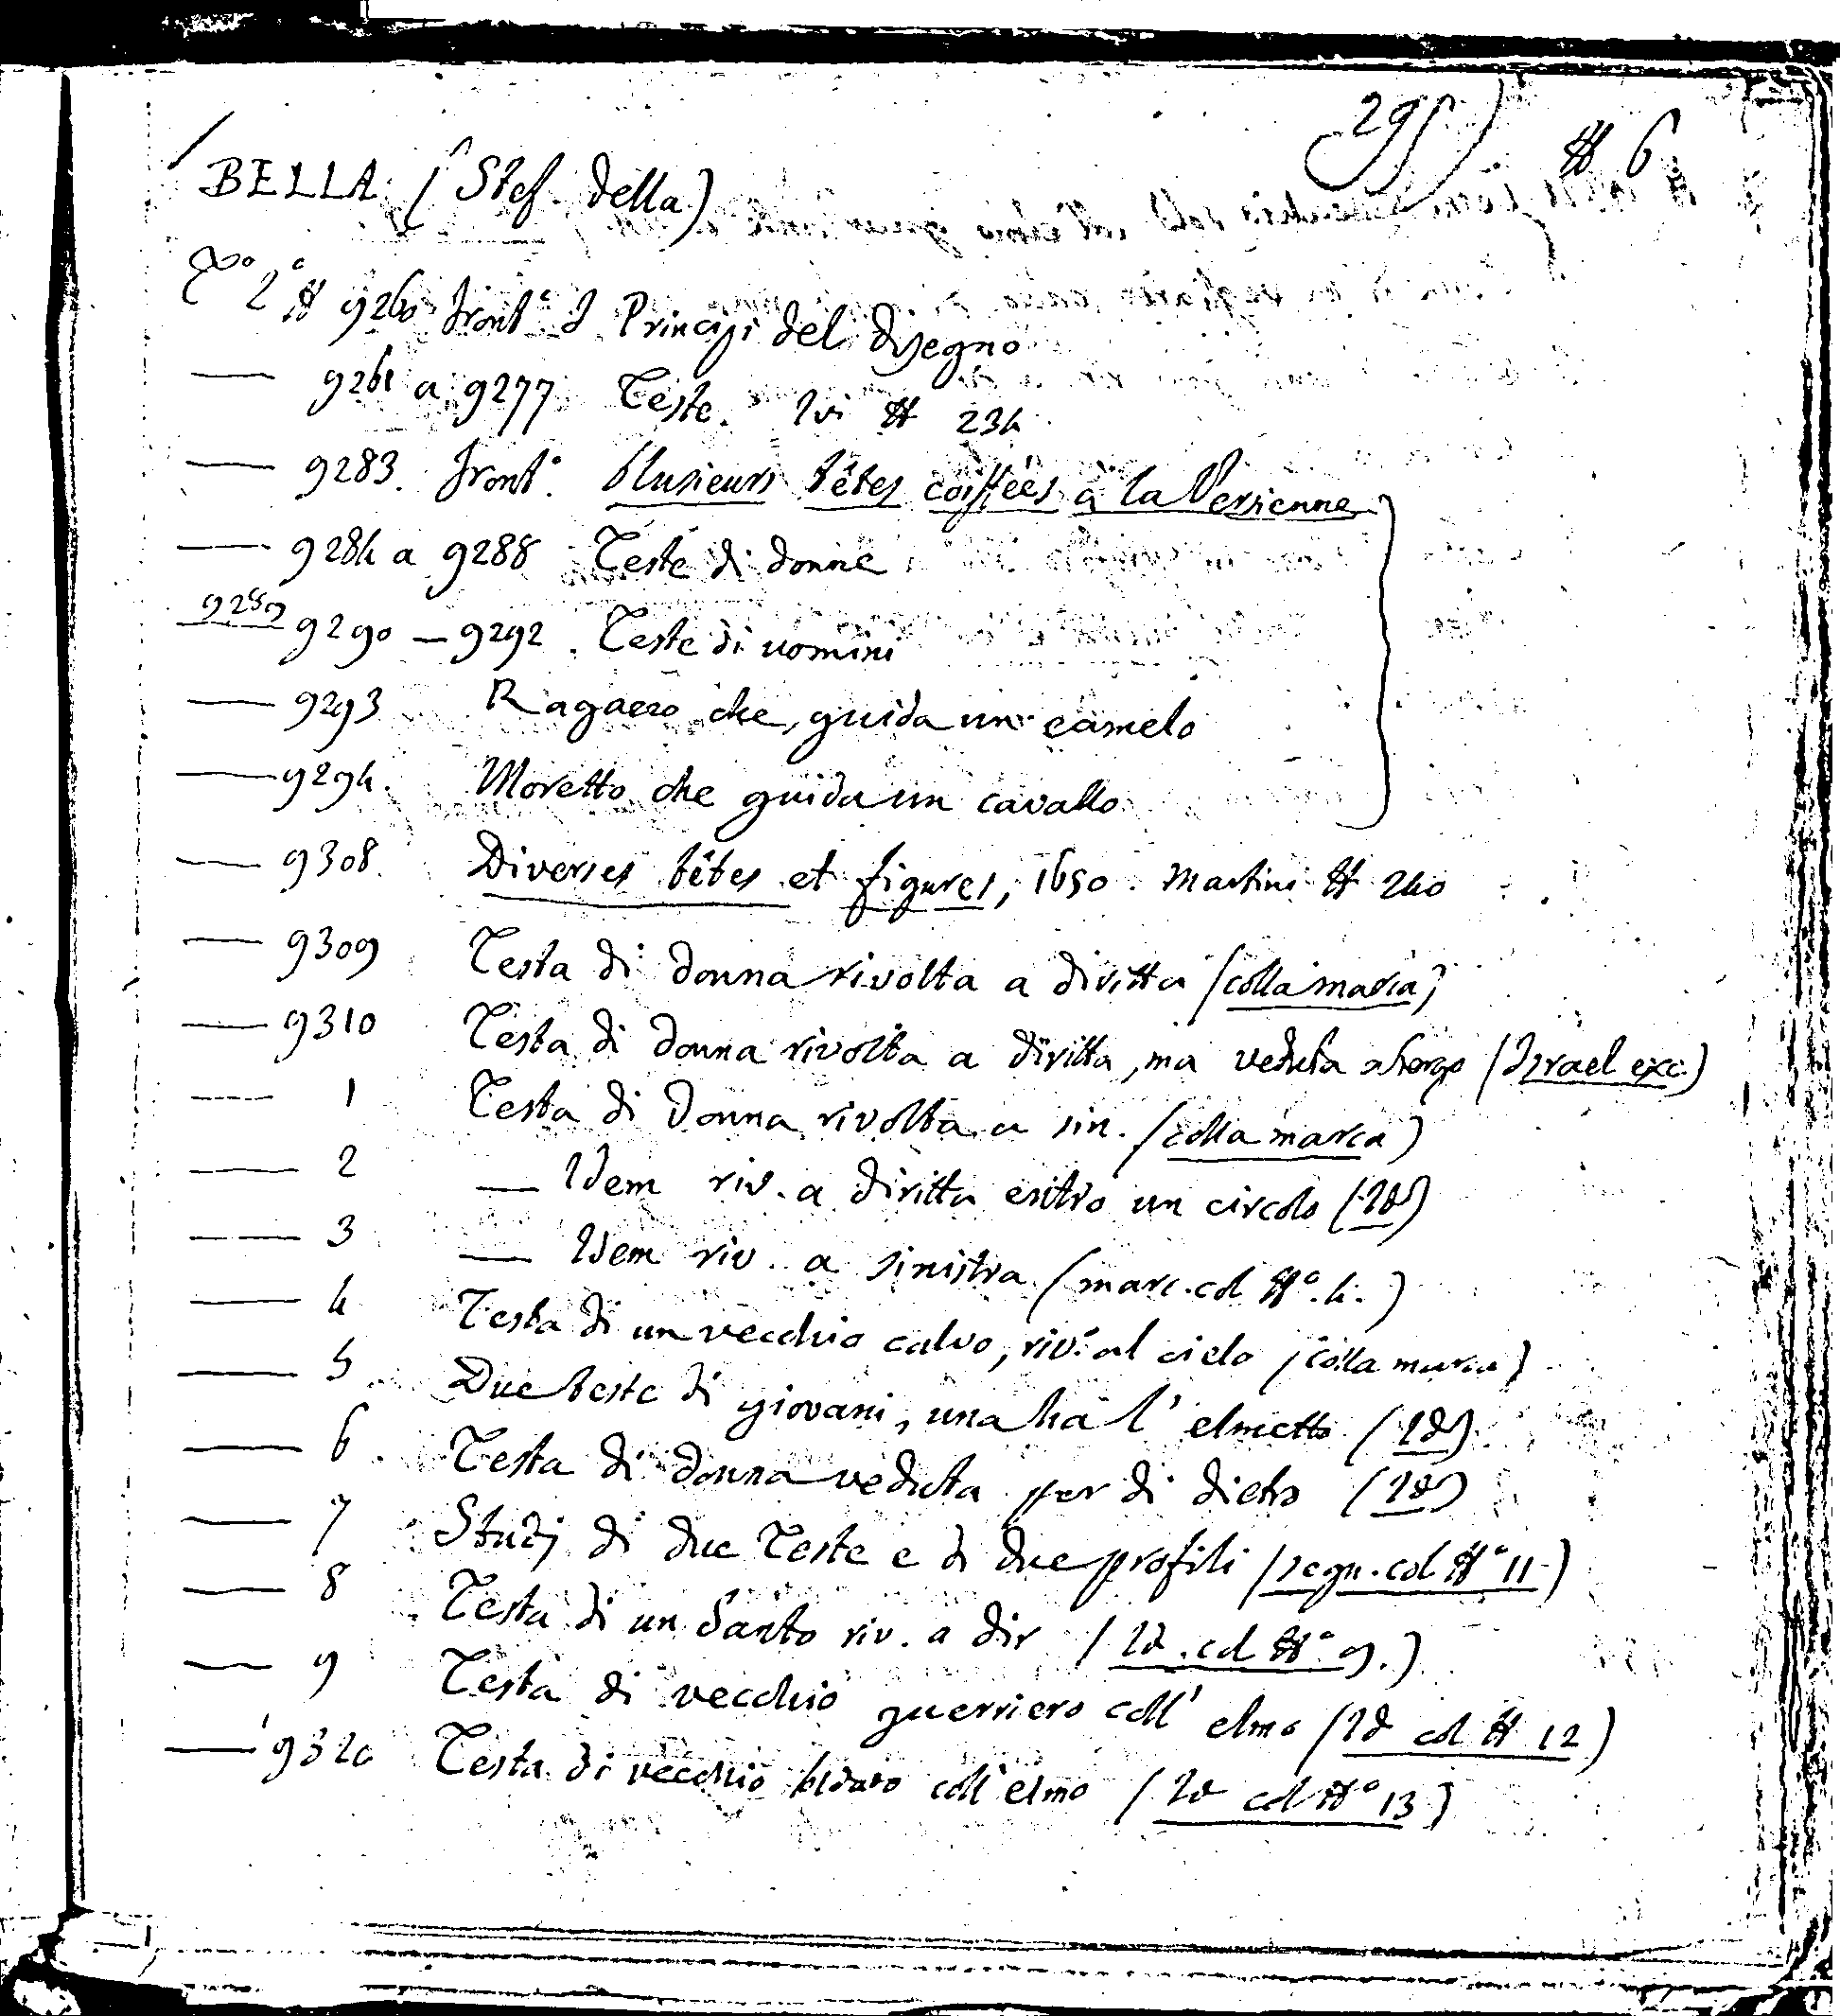 295) # 6
BELLA (Stef. della)
To 2o # 9260 front.o I Principi del disegno
— 9261 a 9277 Teste. Ivi # 234
— 9283. front.o Plusieurs têtes coiffées à la Persienne
— 9284 a 9288 Teste di donne
9289 9290 — 9292. Teste di uomini
— 9293 Ragazzo che guida un camelo
— 9294. Moretto che guida un cavallo
— 9308. Diverses têtes et figures, 1650. Martini # 240
— 9309 Testa di donna rivolta a diritta (colla marca)
— 9310 Testa di donna rivolta a diritta, ma veduta a tergo (Israel exc.)
— 1 Testa di donna rivolta a sin. (colla marca)
— 2 — Idem riv. a diritta entro un circolo (Id)
— 3 — Idem riv. a sinistra (marc. col #o. 4.)
— 4 Testa di un vecchio calvo, riv.o al cielo (colla marca)
— 5 Due teste di giovani, una ha l' elmetto (Id)
— 6 Testa di donna veduta per di dietro (Id)
— 7 Studj di due Teste e di due profili (segn. col #o 11.)
— 8 Testa di un Santo riv. a dir (Id. col #o 9.)
— 9 Testa di vecchio guerriero coll' elmo (Id col # 12)
— 9320 Testa di vecchio coll' elmo (Id col #o 13)